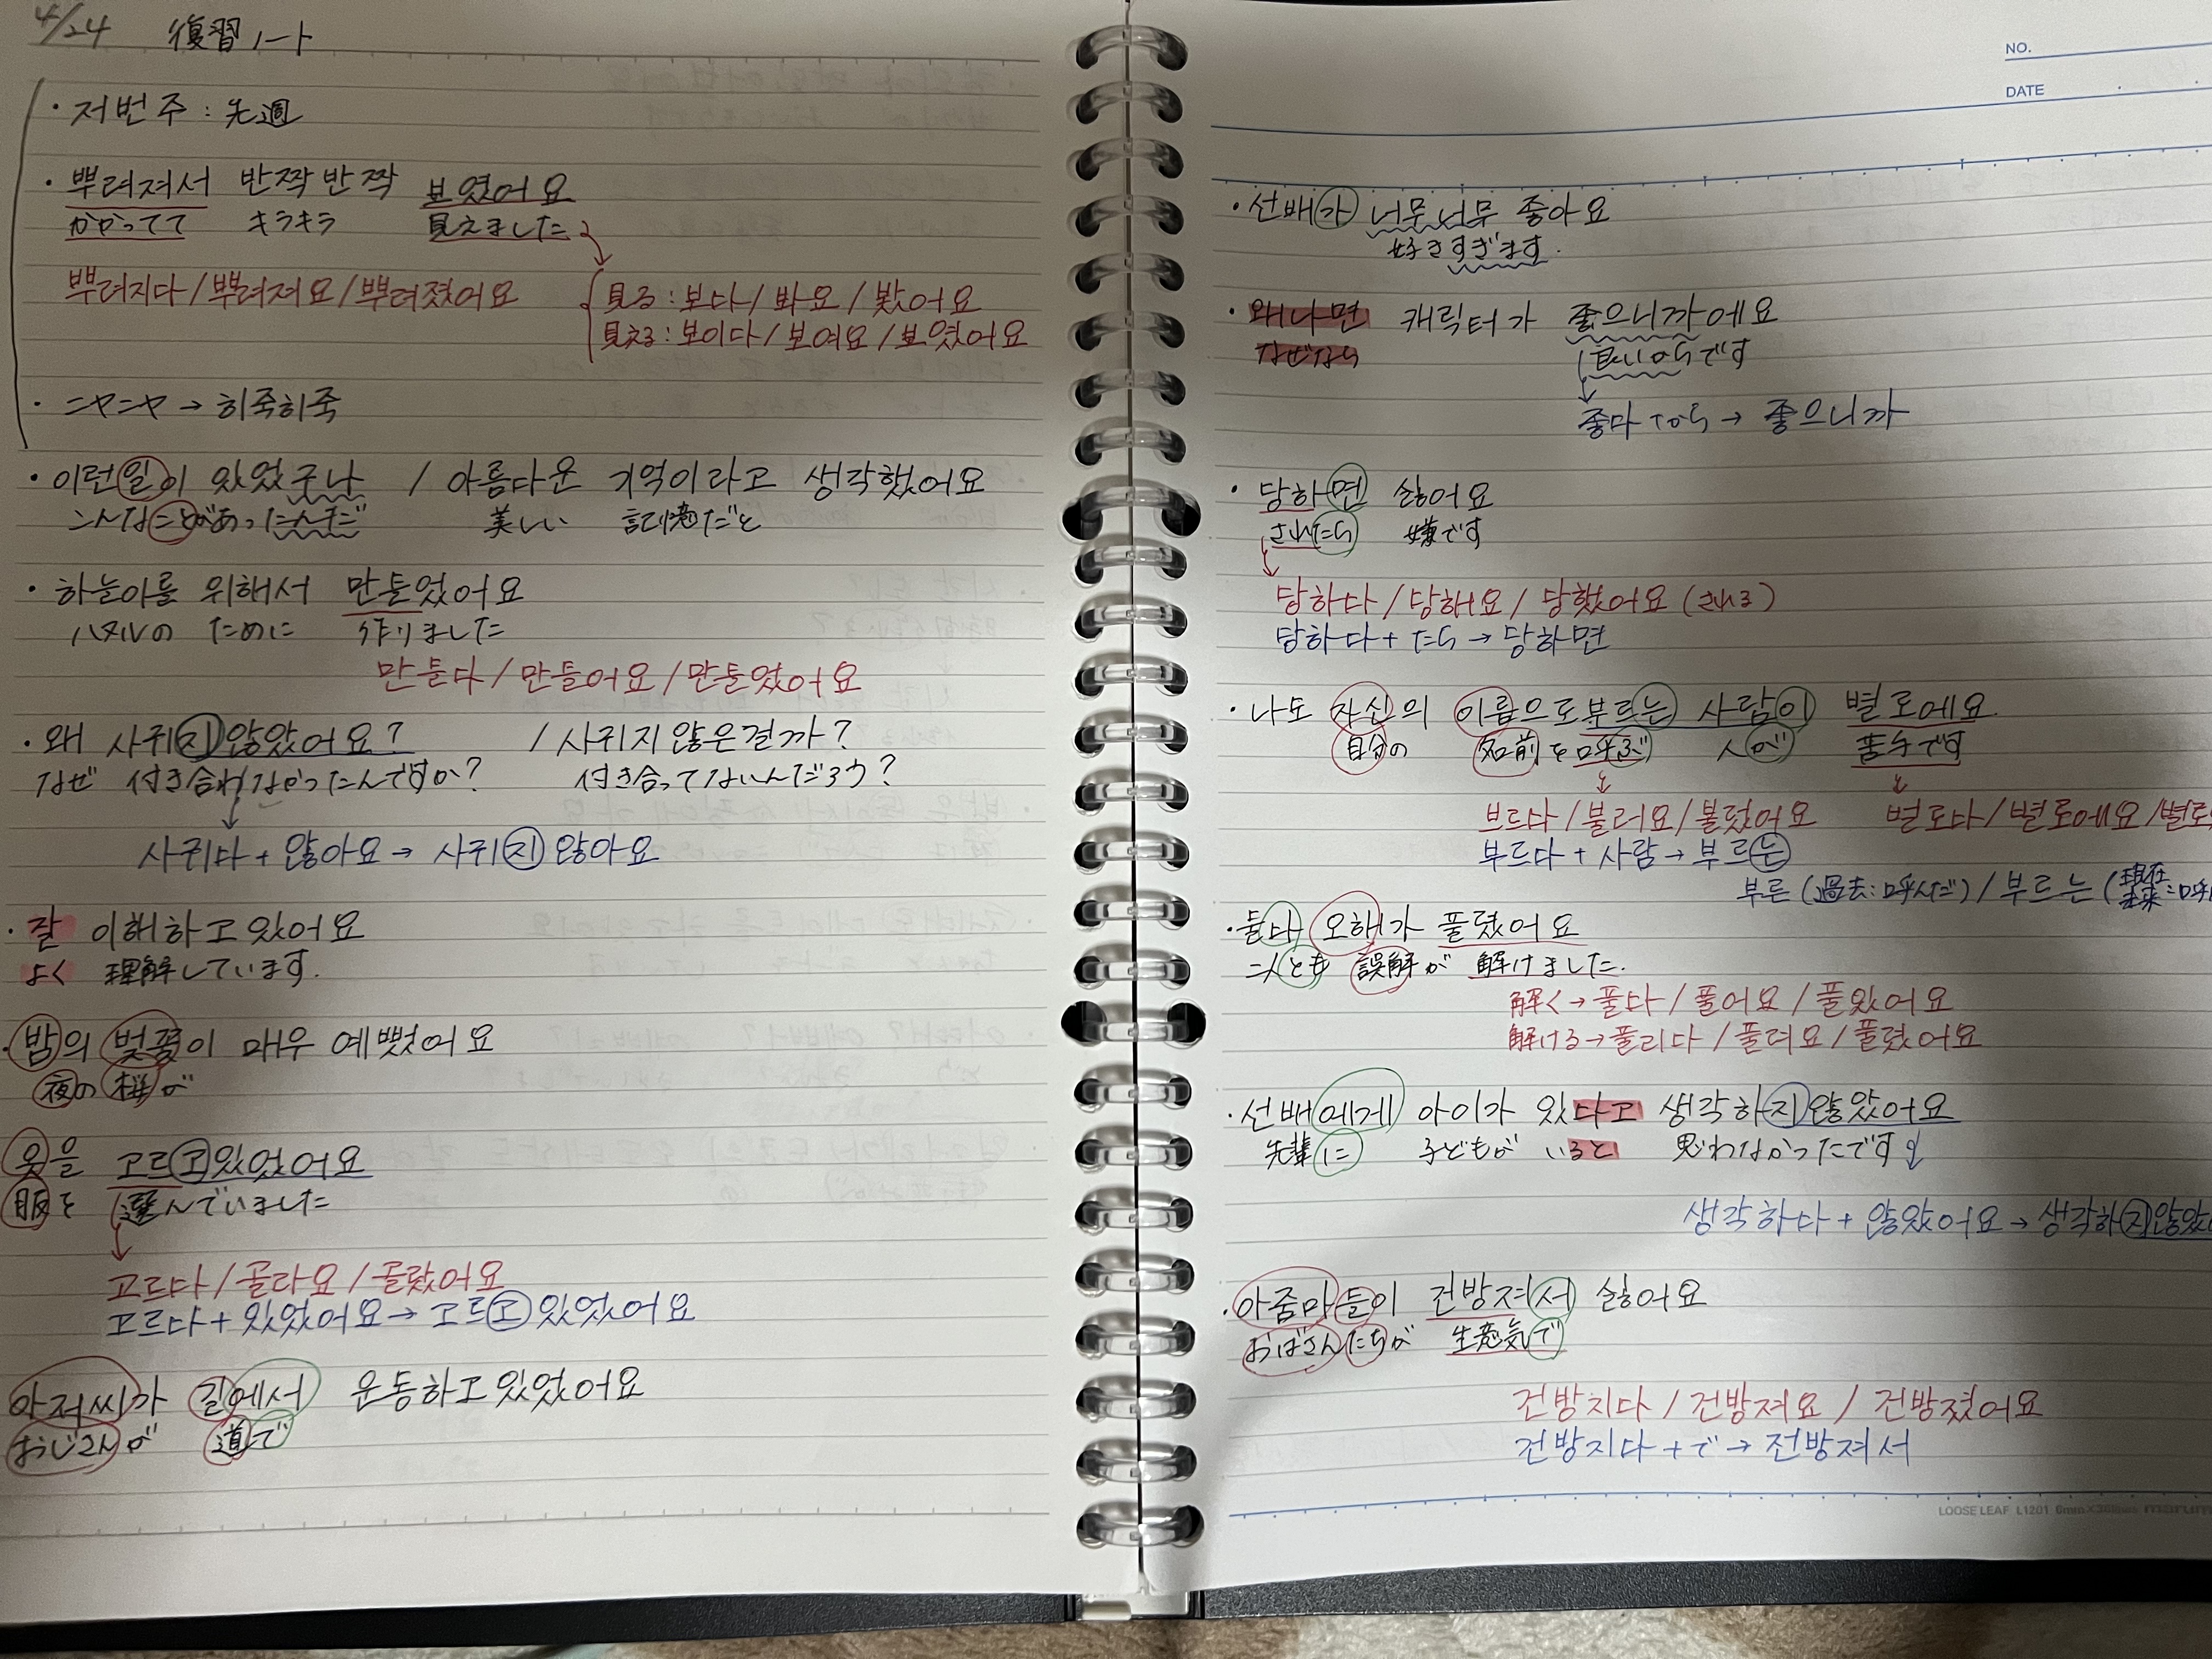 4/24 復習ノート
・저번주 : 先週
・뿌려져서 반짝반짝 보였어요
かかってて キラキラ 見えました
뿌려지다 / 뿌려져요 / 뿌려졌어요
見る : 보다 / 봐요 / 봤어요
見える : 보이다 / 보여요 / 보였어요
・ニヤニヤ → 히죽히죽
・이런 일이 있었구나 / 아름다운 기억이라고 생각했어요
こんなことがあったんだ 美しい 記憶だと
・하늘이를 위해서 만들었어요
ハヌルの ために 作りました
만들다 / 만들어요 / 만들었어요
・왜 사귀지 않았어요? / 사귀지 않은걸까?
なぜ 付き合わなかったんですか? 付き合ってないんだろう?
사귀다 + 않아요 → 사귀지 않아요
・잘 이해하고 있어요
よく 理解しています.
・밤의 벚꽃이 매우 예뻤어요
夜の 桜が
옷을 고르고 있었어요
服を 選んでいました
고르다 / 골라요 / 골랐어요
고르다 + 있었어요 → 고르고 있었어요
아저씨가 길에서 운동하고 있었어요
おじさんが 道で
NO.
DATE
・선배가 너무너무 좋아요
好きすぎます.
・왜나면 캐릭터가 좋으니까에요
なぜなら 良いからです
좋다 + から → 좋으니까
・당하면 싫어요
されたら 嫌です
당하다 / 당해요 / 당했어요 (される)
당하다 + たら → 당하면
・나도 자신의 이름으로부르는 사람이 별로에요.
自分の 名前を呼ぶ 人が 苦手です
부르다 / 불러요 / 불렀어요 별로다 / 별로에요 / 별로
부르다 + 사람 → 부르는
부른 (過去:呼んだ) / 부르는 (現在 未来:呼
・둘다 오해가 풀렸어요
二人とも 誤解が 解けました.
解く → 풀다 / 풀어요 / 풀었어요
解ける → 풀리다 / 풀려요 / 풀렸어요
・선배에게 아이가 있다고 생각하지않았어요
先輩に 子どもが いると 思わなかったです
생각하다 + 않았어요 → 생각하지않았
・아줌마들이 건방져서 싫어요
おばさんたちが 生意気で
건방지다 / 건방져요 / 건방졌어요
건방지다 + で → 건방져서
LOOSE LEAF L1201 6mm×36lines